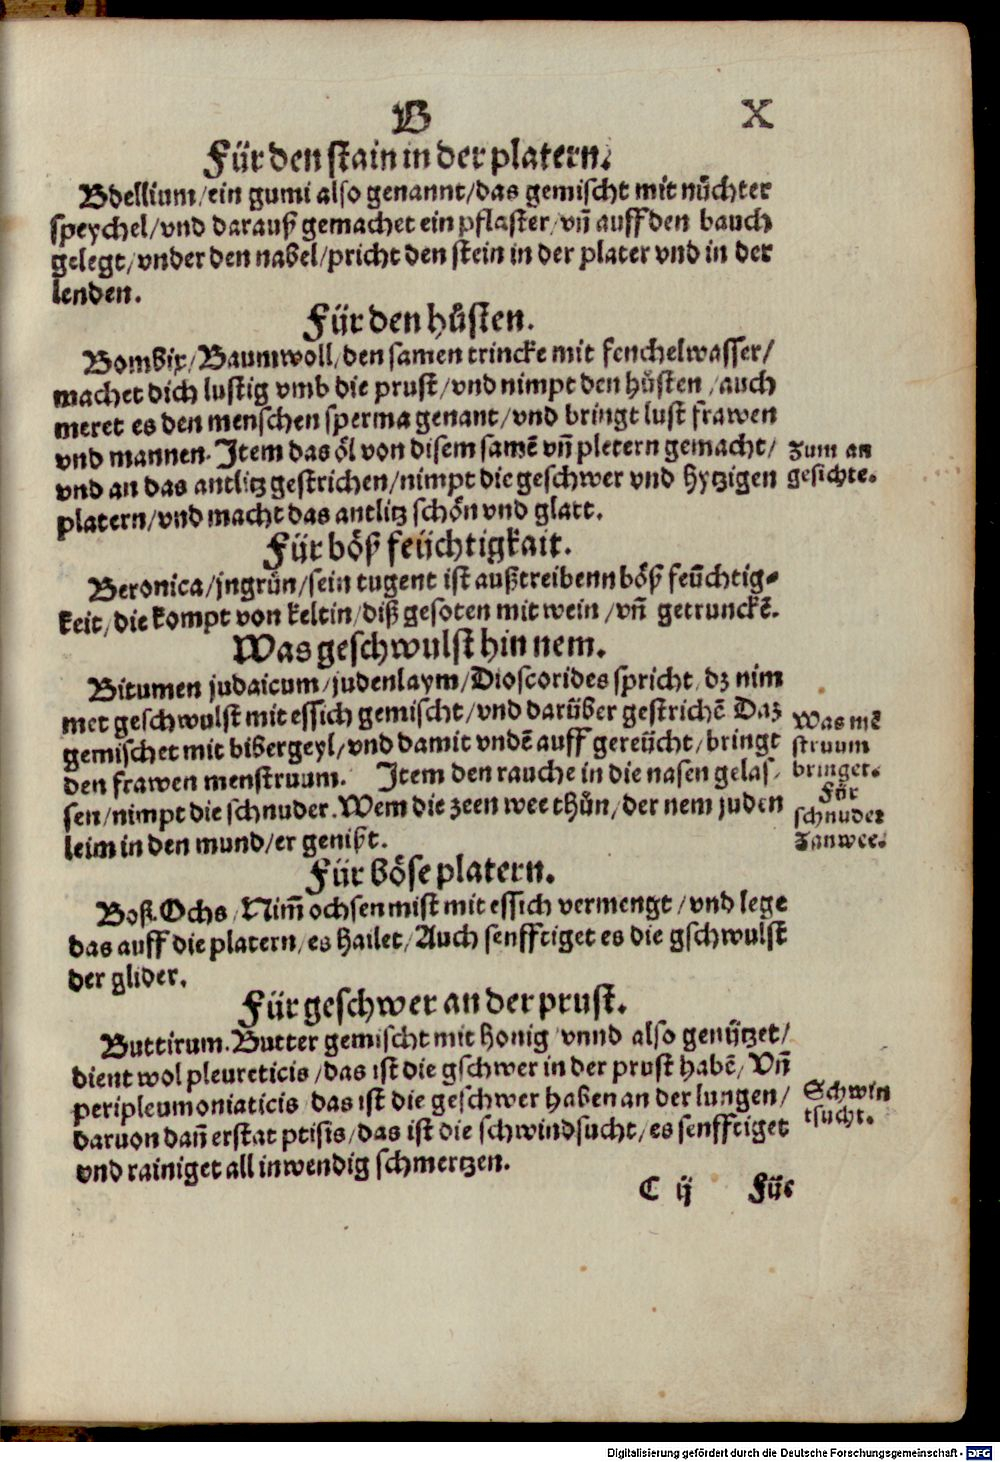 B X
Für den stain in der platern.
Bdellium/ein gumi also genannt/das gemischt mit nüchter
speychel/vnd darauß gemachet ein pflaster/vñ auff den bauch
gelegt/vnder den nabel/pricht den stein in der plater vnd in der
lenden.
Für den hůsten.
Bombix/Baumwoll/den samen trincke mit fenchelwasser/
machet dich lustig vmb die prust/vnd nimpt den hůsten/auch
meret es den menschen sperma genant/vnd bringt lust frawen
vnd mannen. Item das öl von disem samē vñ pletern gemacht/
Zum an
vnd an das antlitz gestrichen/nimpt die geschwer vnd hytzigen
gesichte.
platern/vnd macht das antlitz schön vnd glatt.
Für böß feüchtigkait.
Beronica/jngrün/sein tugent ist außtreibenn böß feüchtig-
keit/die kompt von keltin/diß gesoten mit wein/vñ getrunckē.
Was geschwulst hin nem.
Bitumen judaicum/judenlaym/Dioscorides spricht/dz nim
met geschwulst mit essich gemischt/vnd darüber gestrichē Daz
Was mē
gemischet mit bibergeyl/vnd damit vndē auff gereücht/bringt
struum
den frawen menstruum. Item den rauche in die nasen gelas-
bringet.
Für
sen/nimpt die schnuder. Wem die zeen wee thůn/der nem juden
schnuder
leim in den mund/er genißt.
Zanwee.
Für böse platern.
Boß. Ochs/Nim̄ ochsen mist mit essich vermengt/vnd lege
das auff die platern/es hailet/Auch senfftiget es die gschwulst
der glider.
Für geschwer an der prust.
Buttirum. Butter gemischt mit honig vnnd also genützet/
dient wol pleureticis/das ist die gschwer in der prust habē/Vñ
peripleumoniaticis/das ist die geschwer haben an der lungen/
Schwin
daruon dañ erstat ptisis/das ist die schwindsucht/es senfftiget
tsucht.
vnd rainiget all inwendig schmertzen.
C ij Für
Digitalisierung gefördert durch die Deutsche Forschungsgemeinschaft - DFG